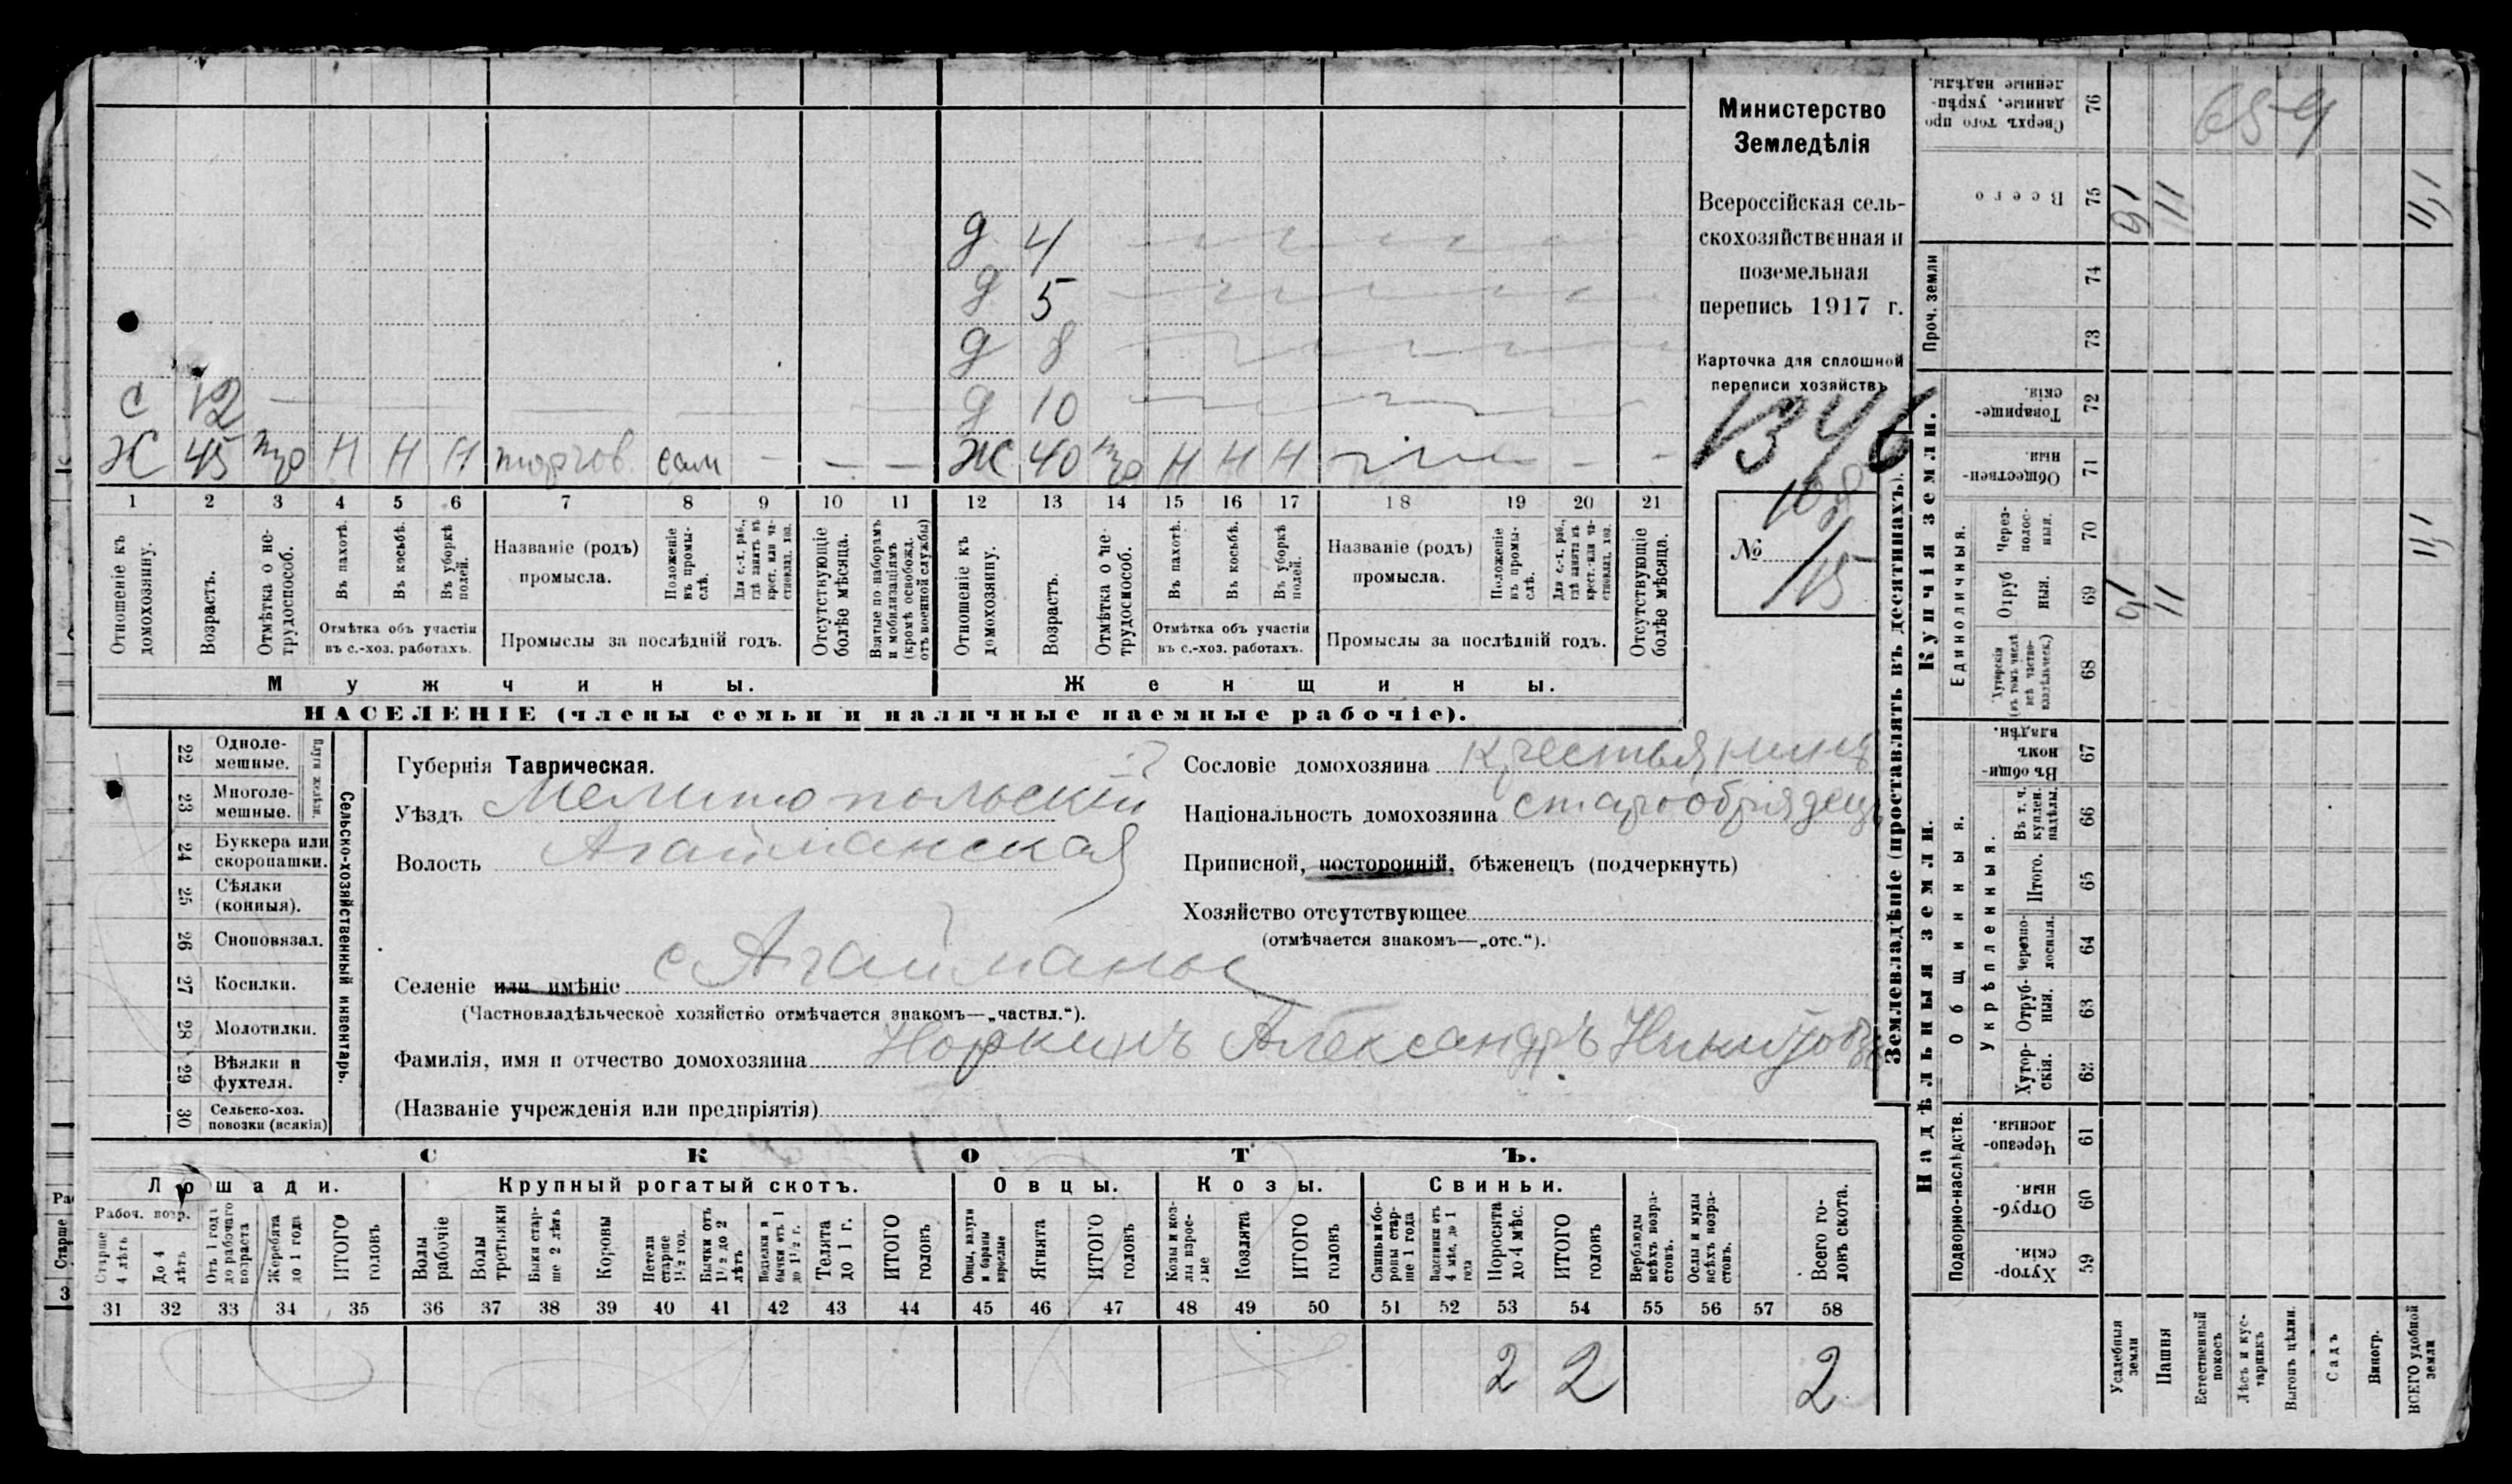 д 4
д 5
д 8
с 12 д 10
Ж 45 тр Н Н Н торгов. сам — — — Ж 40 тр Н Н Н — —
1 2 3 4 5 6 7 8 9 10 11 12 13 14 15 16 17 18 19 20 21
Отношеніе къ домохозяину.
Возрастъ.
Отмѣтка о не-трудоспособ.
Въ пахотѣ.
Въ косьбѣ.
Въ уборкѣ полей.
Отмѣтка объ участіи
въ с.-хоз. работахъ.
Названіе (родъ)
промысла.
Положеніе въ промы-слѣ.
Для с.-х. раб., гдѣ занятъ въ крест. или ча-стновлад. хоз.
Промыслы за послѣдній годъ.
Отсутствующіе болѣе мѣсяца.
Взятые по наборамъ и мобилизаціямъ (кромѣ освобожд. отъ военной службы)
Отношеніе къ домохозяину.
Возрастъ.
Отмѣтка о не-трудоспособ.
Въ пахотѣ.
Въ косьбѣ.
Въ уборкѣ полей.
Отмѣтка объ участіи
въ с.-хоз. работахъ.
Названіе (родъ)
промысла.
Положеніе въ промы-слѣ.
Для с.-х. раб., гдѣ занята въ крест. или ча-стновлад. хоз.
Промыслы за послѣдній годъ.
Отсутствующіе болѣе мѣсяца.
Мужчины. Женщины.
НАСЕЛЕНІЕ (члены семьи и наличные наемные рабочіе).
Министерство
Земледѣлія
Всероссійская сель-
скохозяйственная и
поземельная
перепись 1917 г.
Карточка для сплошной
переписи хозяйствъ
1346
108
№ 115
22 Одноле-мешные.
23 Многоле-мешные.
24 Буккера или скоропашки.
25 Сѣялки (конныя).
26 Сноповязал.
27 Косилки.
28 Молотилки.
29 Вѣялки и фухтеля.
30 Сельско-хоз. повозки (всякія)
Сельско-хозяйственный инвентарь.
Губернія Таврическая.
Уѣздъ Мелитопольскій
Волость Агайманская
Сословіе домохозяина крестьянинъ
Національность домохозяина старообрядецъ
Приписной, посторонній, бѣженецъ (подчеркнуть)
Хозяйство отсутствующее
(отмѣчается знакомъ—„отс.“).
Селеніе или имѣніе с Агайманы
(Частновладѣльческое хозяйство отмѣчается знакомъ—„частвл.“).
Фамилія, имя и отчество домохозяина Норкинъ Александръ Никитовъ
(Названіе учрежденія или предпріятія)
СКОТЪ.
Лошади. Крупный рогатый скотъ. Овцы. Козы. Свиньи.
Рабоч. возр.
Старше 4 лѣтъ
До 4 лѣтъ
Отъ 1 года до рабочаго возраста
Жеребята до 1 года
ИТОГО головъ
Волы рабочіе
Волы третьяки
Быки стар-ше 2 лѣтъ
Коровы
Нетели старше 1½ год.
Бычки отъ 1½ до 2 лѣтъ
Подтелки и бычки отъ 1 до 1½ г.
Телята до 1 г.
ИТОГО головъ
Овцы, валухи и бараны взрослые
Ягнята
ИТОГО головъ
Козы и коз-лы взрос-лые
Козлята
ИТОГО головъ
Свиньи и бо-ровы стар-ше 1 года
Подсвинки отъ 4 мѣс. до 1 года
Поросята до 4 мѣс.
ИТОГО головъ
Верблюды всѣхъ возра-стовъ.
Ослы и мулы всѣхъ возра-стовъ.
Всего го-ловъ скота.
31 32 33 34 35 36 37 38 39 40 41 42 43 44 45 46 47 48 49 50 51 52 53 54 55 56 57 58
2 2 2
Землевладѣніе (проставлять въ десятинахъ).
Сверхъ того про данные, укрѣп-ленные надѣлы. 76
659
Всего 75 91 11 11,1
Проч. земли 74
73
Купчія земли.
Товарище-скія. 72
Обществен-ныя. 71
Единоличныя.
Через-полос-ныя. 70 11,1
Отруб ныя. 69 91 11
Хуторскія (въ томъ числѣ всѣ частно-владѣльческ.) 68
Надѣльныя земли.
Общинныя.
Въ общи-номъ владѣн. 67
Укрѣпленныя.
Въ т. ч. куплен. надѣлы. 66
Итого. 65
Черезпо-лосныя. 64
Отруб-ныя. 63
Хутор-скія. 62
Подворно-наслѣдств.
Черезпо-лосныя. 61
Отруб-ныя. 60
Хутор-скія. 59
Усадебныя земли
Пашня
Естественный покосъ
Лѣсъ и кус-тарникъ
Выгонъ цѣлин.
Садъ
Виногр.
ВСЕГО удобной земли